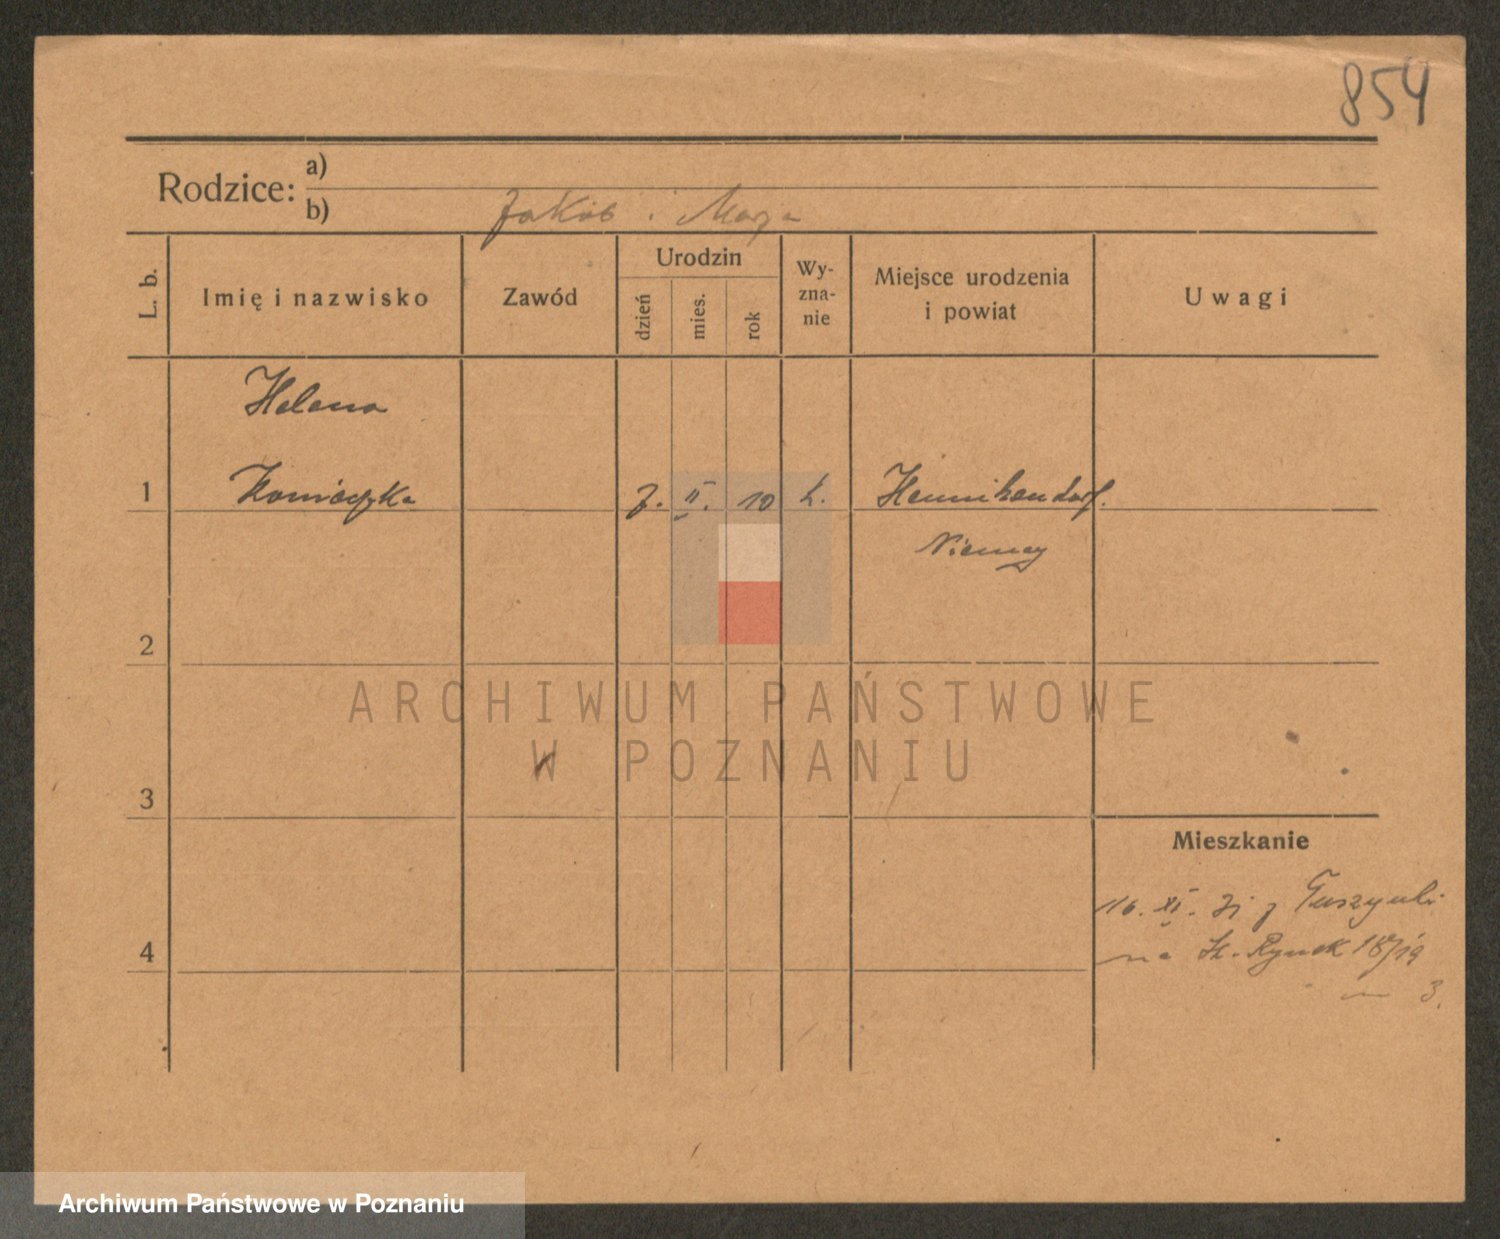 854
Rodzice: a)
b) Jakób i Marja
L. b.
Imię i nazwisko
Zawód
Urodzin
dzień
mies.
rok
Wy-
zna-
nie
Miejsce urodzenia
i powiat
Uwagi
Helena
1
7. II. 10
Hennikendorf.
Niemcy
2
ARCHIWUM PAŃSTWOWE
W POZNANIU
3
Mieszkanie
16. XI. z
4
na St. Rynek 18/19
3.
Archiwum Państwowe w Poznaniu